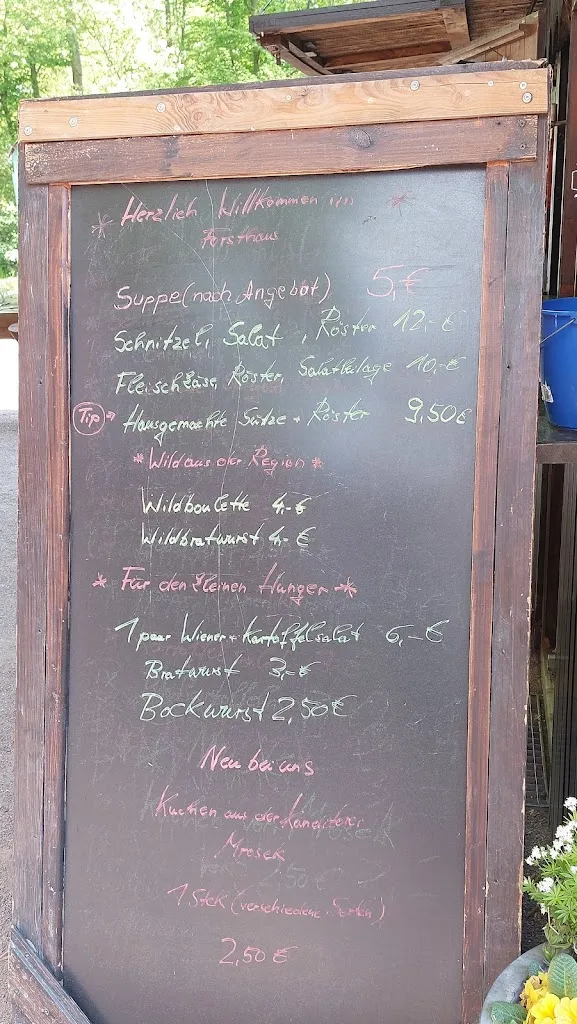 * Herzlich Willkommen im *
Forsthaus
Suppe (nach Angebot) 5,€
Schnitzel, Salat, Röster 12,-€
Fleischkäse, Röster, Salatbeilage 10,-€
Tip Hausgemachte Sülze + Röster 9,50€
* Wild aus der Region *
Wildboulette 4,-€
Wildbratwurst 4,-€
* Für den kleinen Hunger *
1 paar Wiener + Kartoffelsalat 6,-€
Bratwurst 3,-€
Bockwurst 2,50€
Neu bei uns
Kuchen aus der Konditorei
Mrosek
1. Stck (verschiedene Sorten)
2,50€